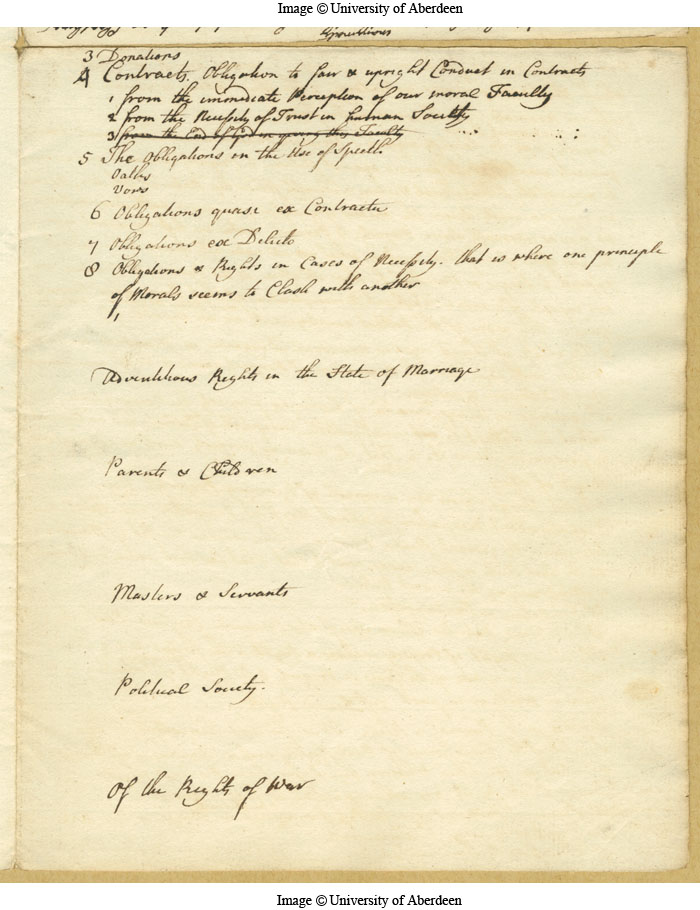 Image © University of Aberdeen
3 Donations
4 Contracts. Obligation to fair & upright Conduct in Contracts
1 from the immediate Perception of our moral Faculty
2 from the Necessity of Trust in human Society
3 from the End of God in giving this Faculty
5 The Obligations in the Use of Speech.
Oaths
Vows
6 Obligations quasi ex Contractu
7 Obligations ex Delicto
8 Obligations & Rights in Cases of Necessity. that is where one principle
of Morals seems to Clash with another
1
Adventitious Rights in the State of Marriage
Parents & Children
Masters & Servants
Political Society.
Of the Rights of War
Image © University of Aberdeen